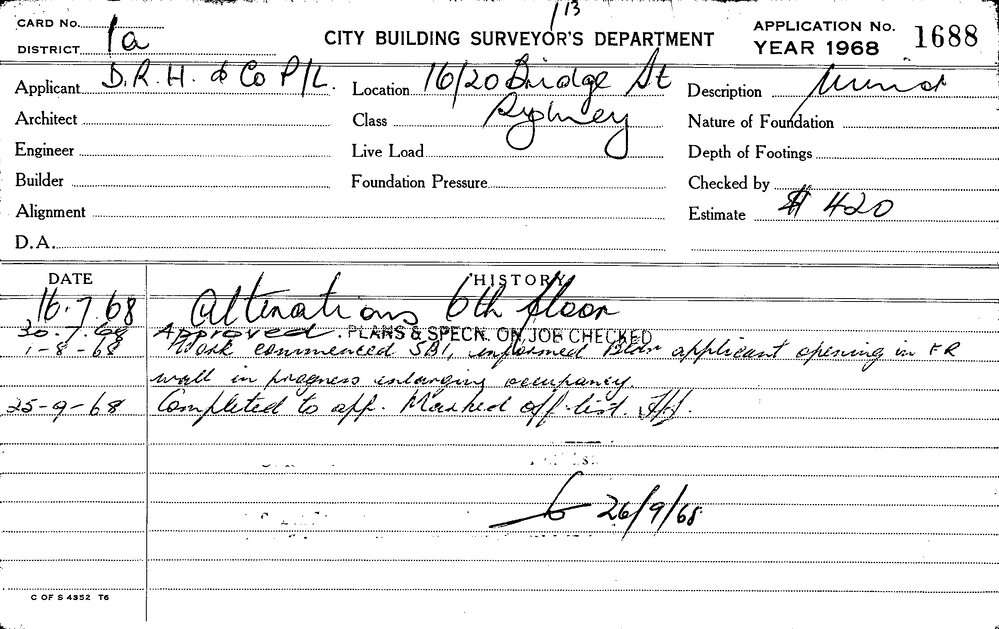 1/13
CARD No.
DISTRICT 1a
CITY BUILDING SURVEYOR'S DEPARTMENT
APPLICATION No. 1688
YEAR 1968
Applicant D.R.H. & Co P/L.
Location 16/20 Bridge St
Sydney
Description
Architect
Class
Nature of Foundation
Engineer
Live Load
Depth of Footings
Builder
Foundation Pressure
Checked by
Alignment
Estimate $ 420
D.A.
DATE
HISTORY
16.7.68 Alterations 6th floor
30.7.68 Approved. PLANS & SPECN. ON JOB CHECKED
1-8-68 Work commenced SBI, informed applicant opening in FR
wall in progress enlarging occupancy.
25-9-68 Completed to app. Marked off list.
26/9/68
C OF S 4352 T6